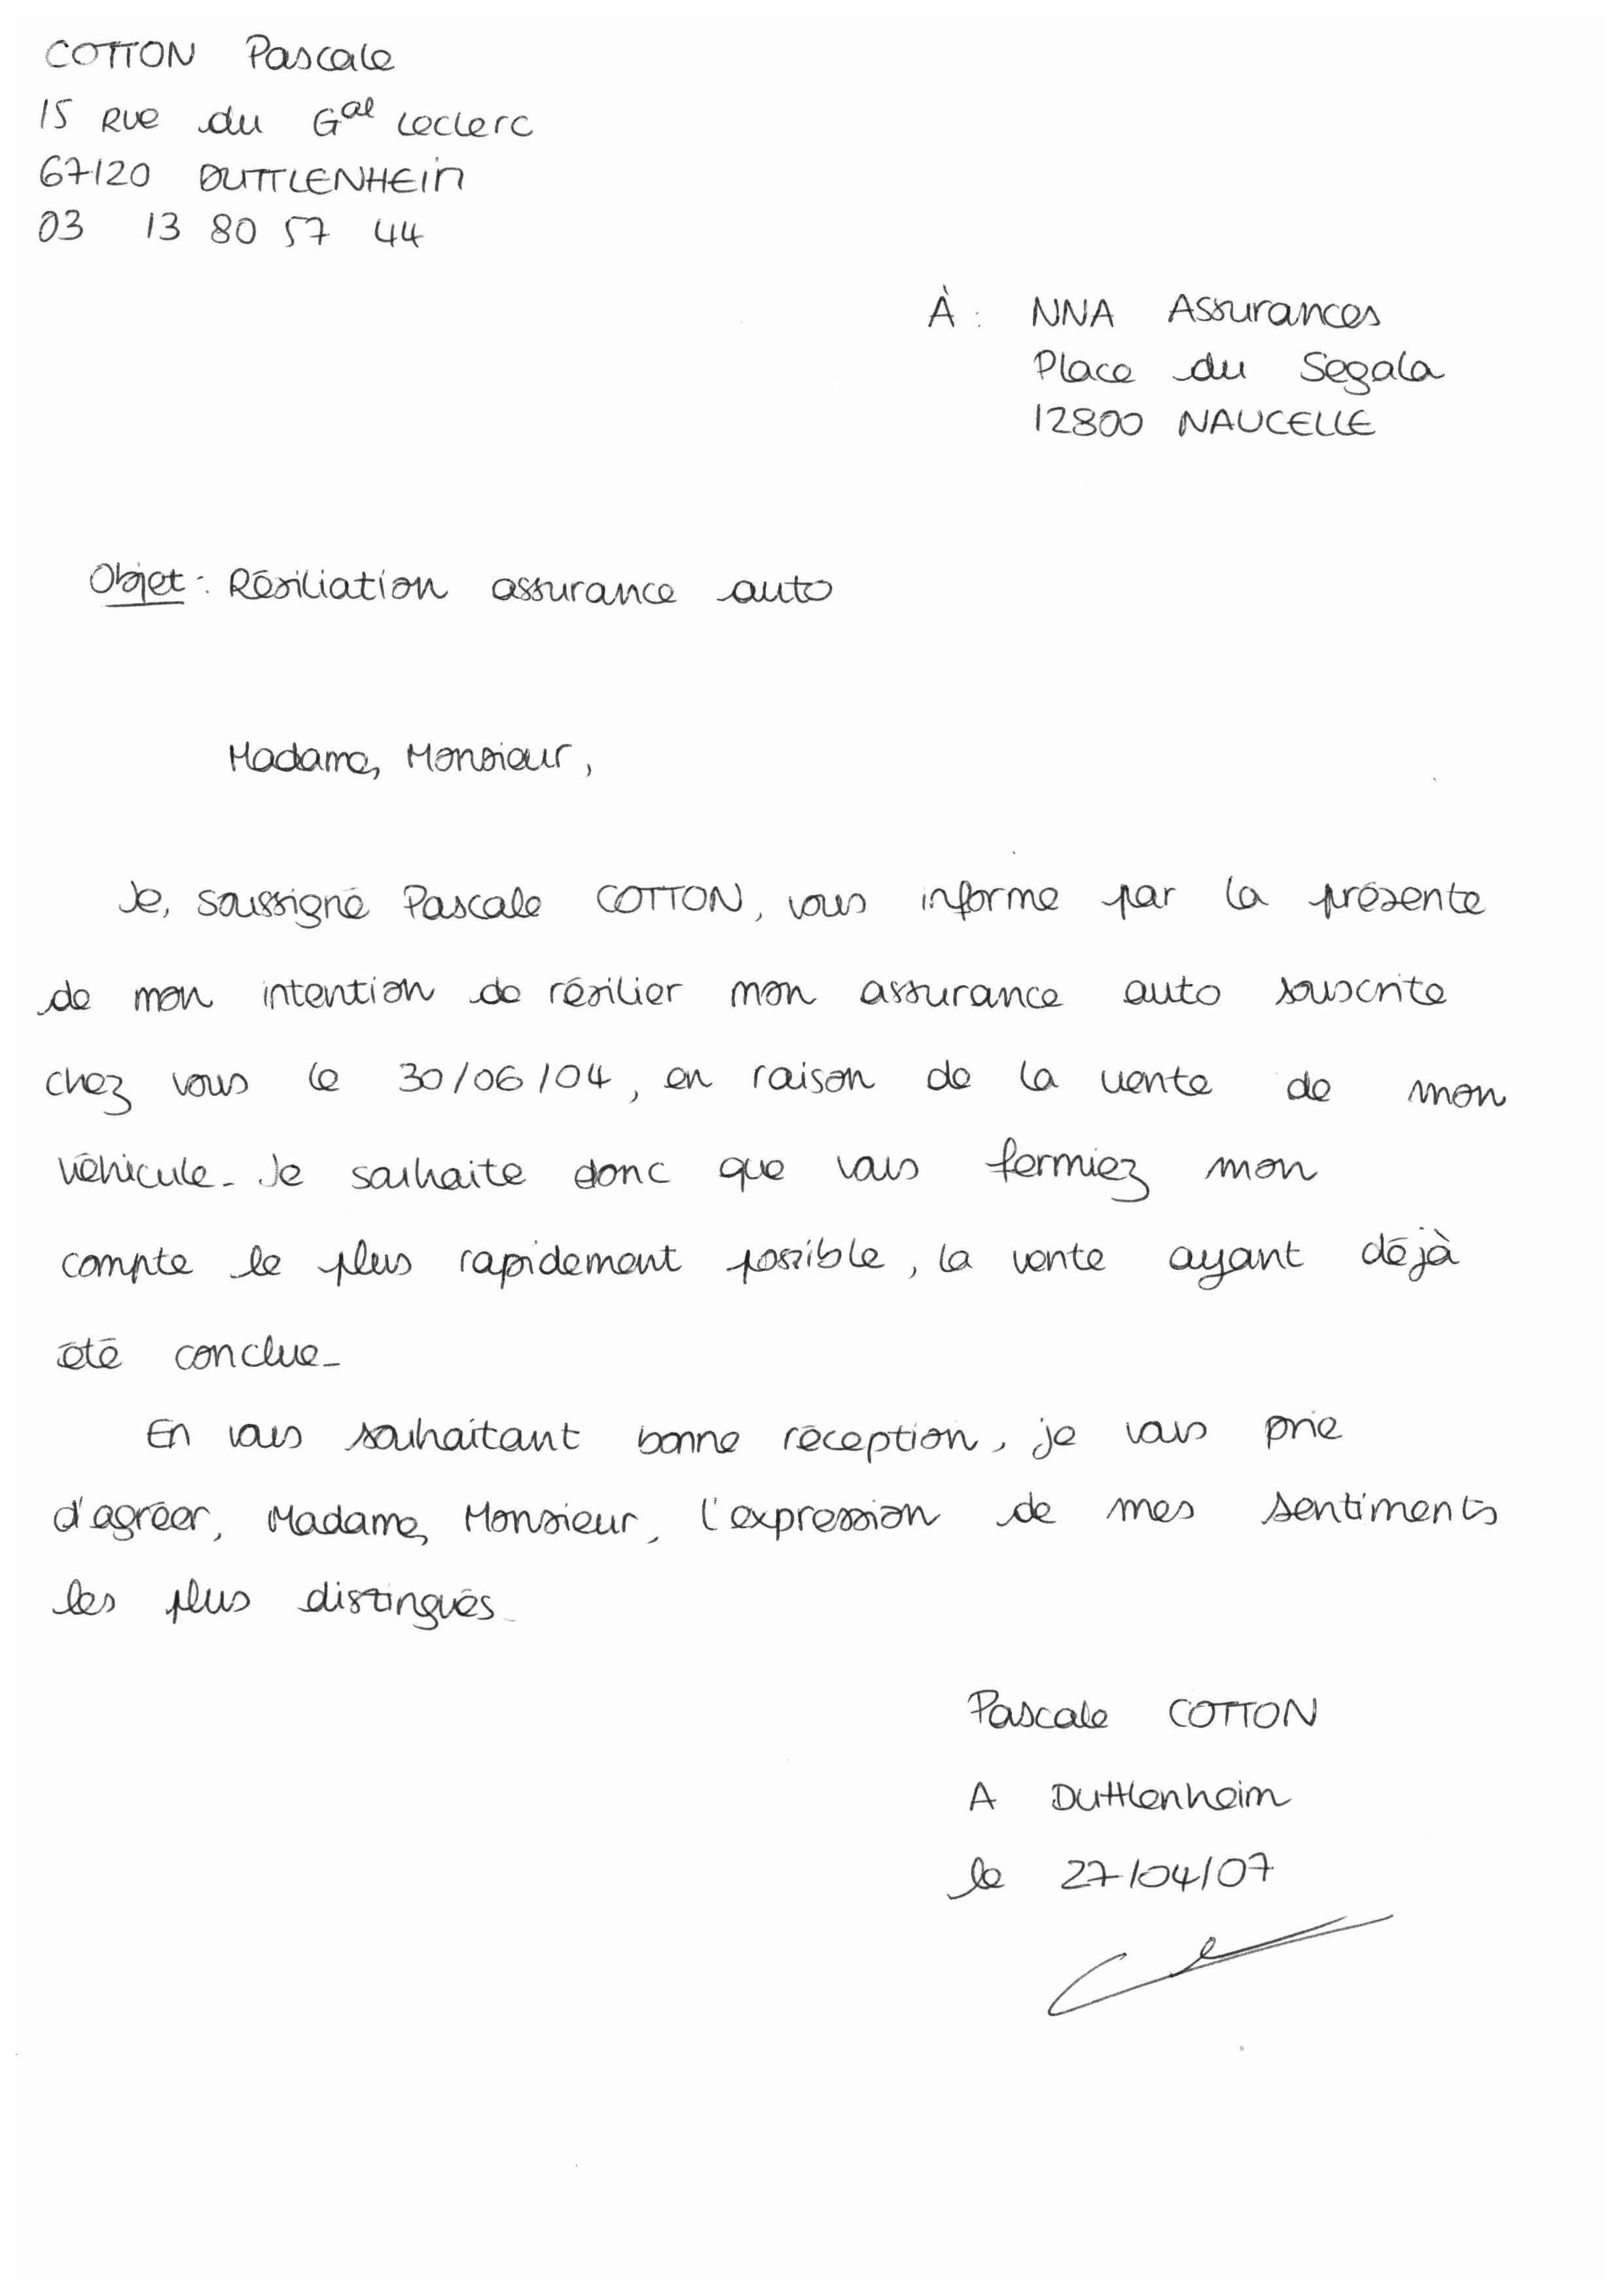 COTTON Pascale
15 Rue du Gal Leclerc
67120 DUTTLENHEIM
03 13 80 57 44
À : NNA Assurances
Place du Segala
12800 NAUCELLE
Objet : Résiliation assurance auto
Madame, Monsieur,
Je, soussigné Pascale COTTON, vous informe par la présente
de mon intention de résilier mon assurance auto souscrite
chez vous le 30/06/04, en raison de la vente de mon
véhicule. Je souhaite donc que vous fermiez mon
compte le plus rapidement possible, la vente ayant déjà
été conclue.
En vous souhaitant bonne réception, je vous prie
d'agréer, Madame, Monsieur, l'expression de mes sentiments
les plus distingués.
Pascale COTTON
A Duttlenheim
le 27/04/07